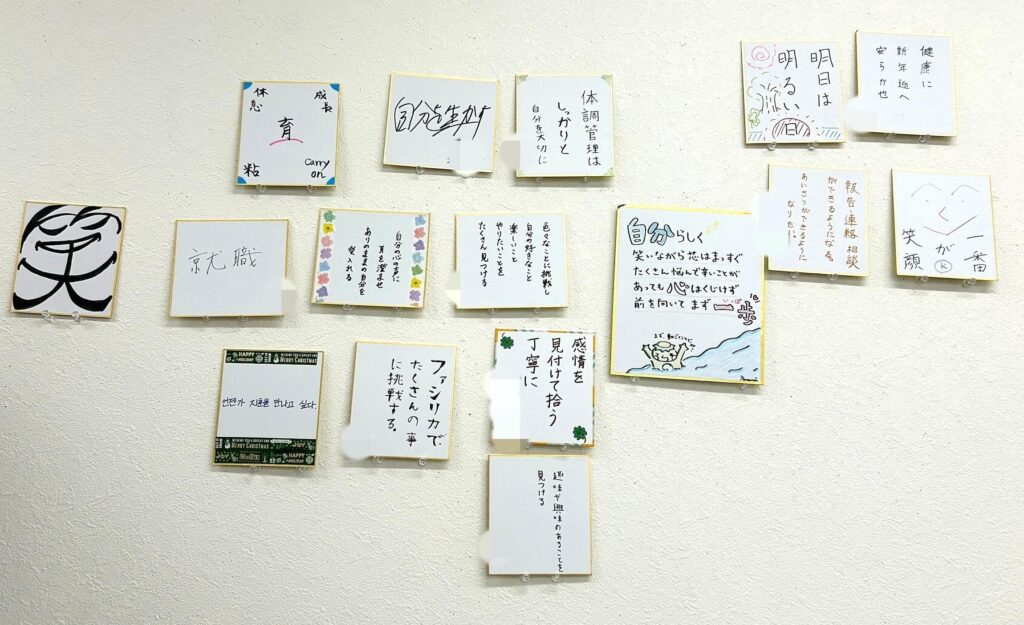 成長
休息
育
粘
carry on
自分を生かす
体調管理は
しっかりと
自分を大切に
明日は
明るい
健康に
新年迎へ
安らか也
笑
就職
自分の心の声に
耳を澄ませ
ありのままの自分を
受入れる
色々なことに挑戦し
自分の好きなこと
楽しいこと
やりたいことを
たくさん見つける
自分らしく
笑いながら芯はまっすぐ
たくさん悩んで辛いことが
あっても心はくじけず
前を向いてまず一歩
いっぽ
報告・連絡・相談
ができるようになる。
あいさつができるように
なりたい。
笑顔
が
一番
K
HAPPY HOLIDAY
MERRY CHRISTMAS
언젠가 만나고 싶다.
MERRY CHRISTMAS
JOY
HAPPY HOLIDAY
ファシリカで
たくさんの事
に挑戦する。
感情を
見付けて拾う
丁寧に
趣味や興味のあることを
見つける